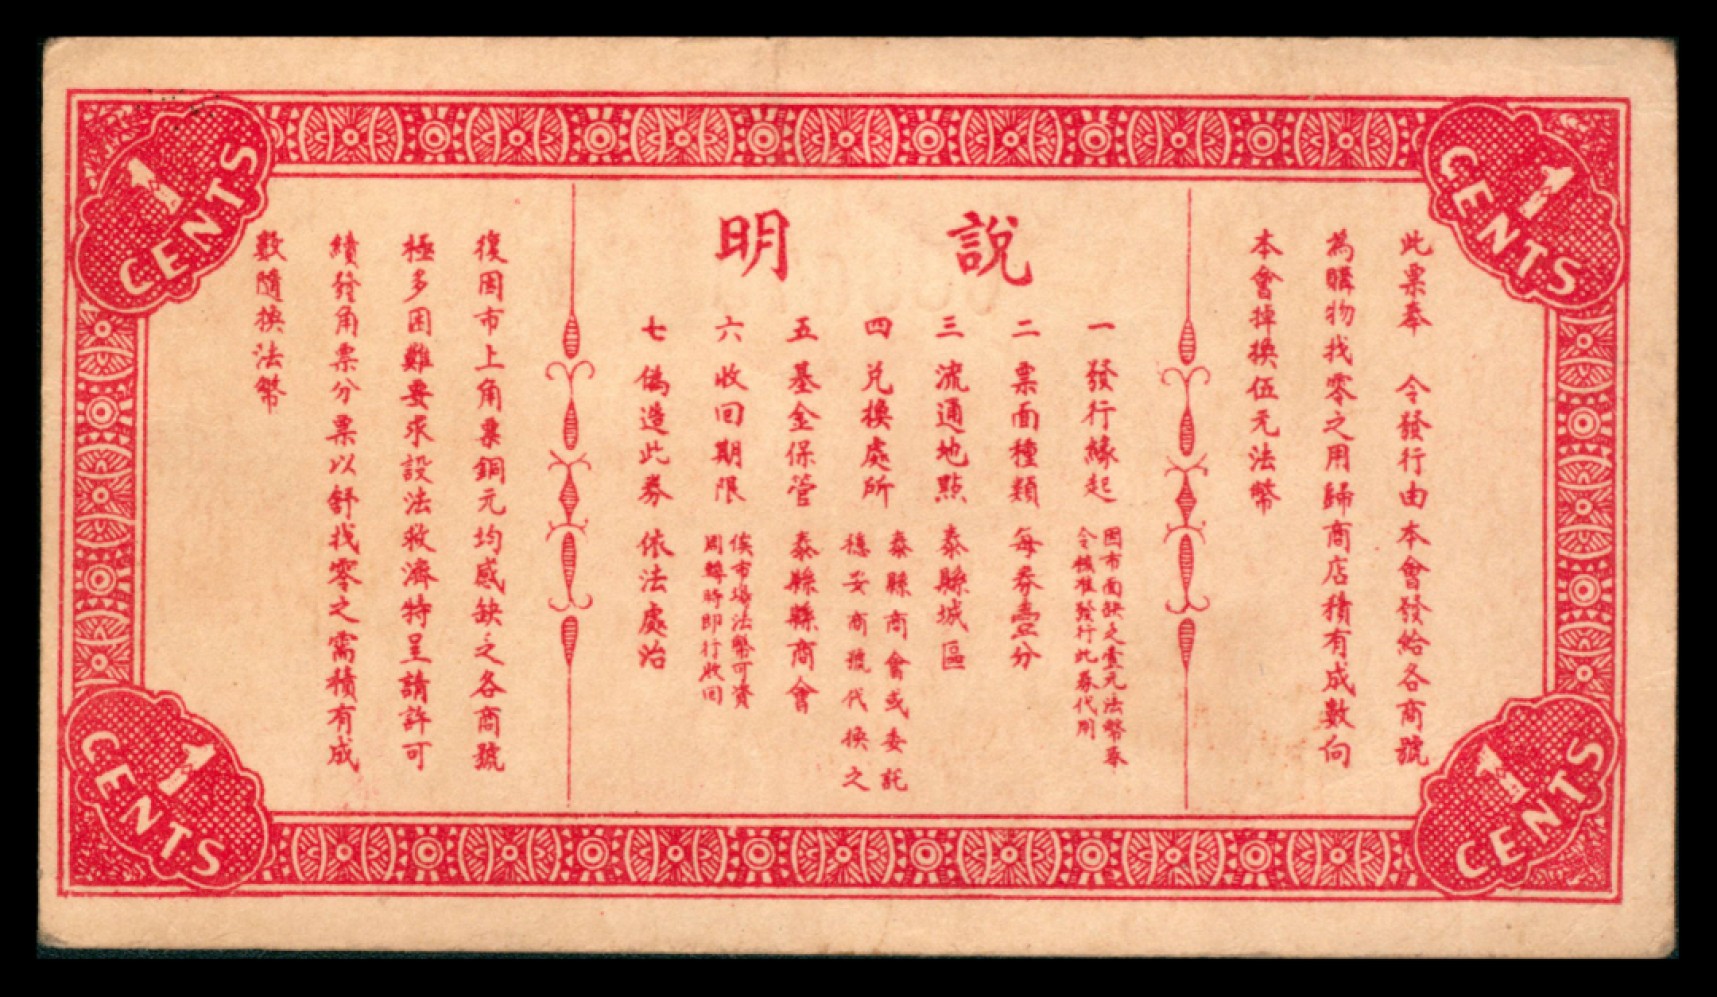 1 CENTS
1 CENTS
說明
此票奉 令發行由本會發給各商號
為購物找零之用歸商店積有成數向
本會掉換伍元法幣
一 發行緣起 因市面缺乏壹元法幣奉
令核准發行此券代用
二 票面種類 每券壹分
三 流通地點 泰縣城區
四 兌換處所 泰縣商會或委託
穩妥商號代換之
五 基金保管 泰縣縣商會
六 收回期限 俟市場法幣可資
周轉時即行收回
七 偽造此券 依法處治
復因市上角票銅元均感缺乏各商號
極多困難要求設法救濟特呈請許可
續發角票分票以舒找零之需積有成
數隨換法幣
1 CENTS
1 CENTS